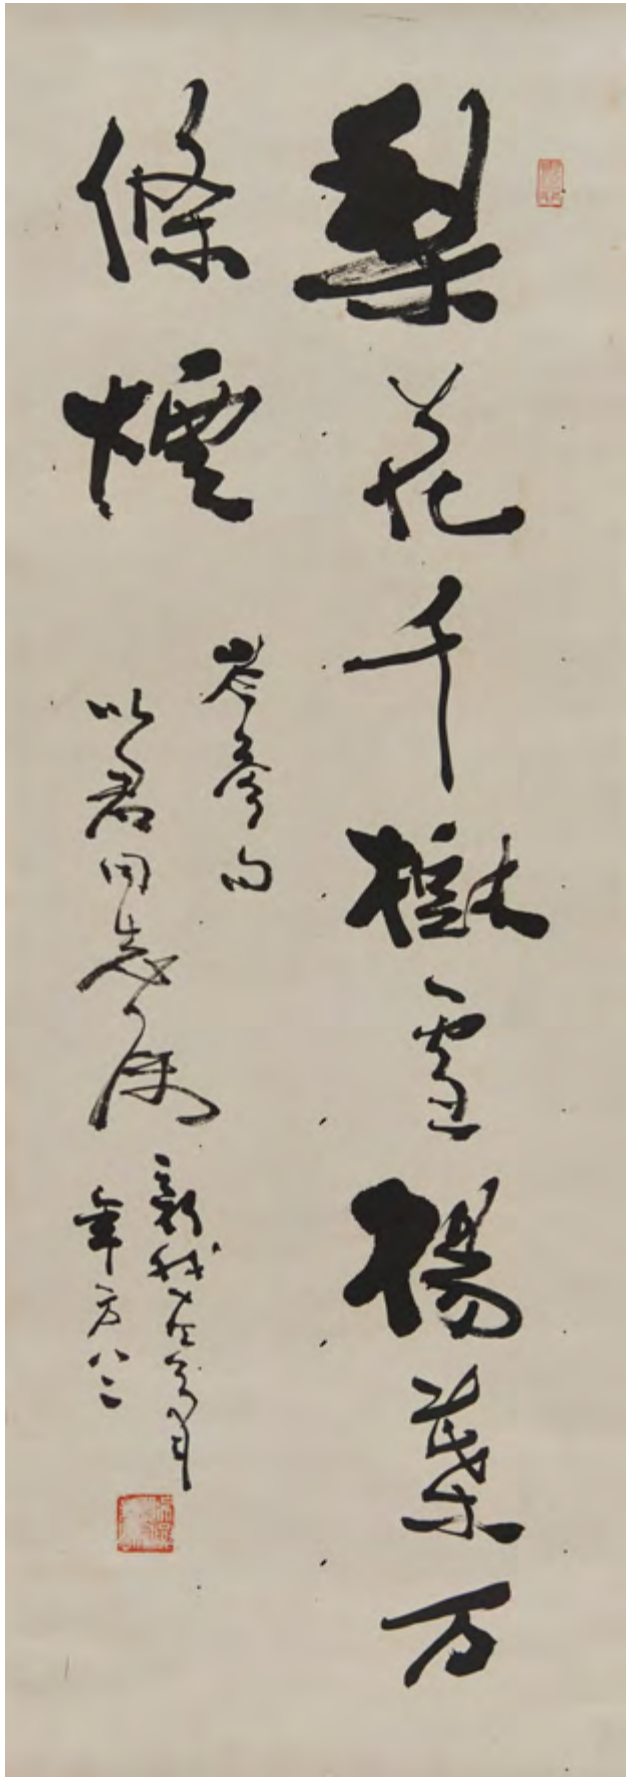 梨花千樹雪楊葉万
條煙
岑參句
以君同志屬
新我左筆
年方八二